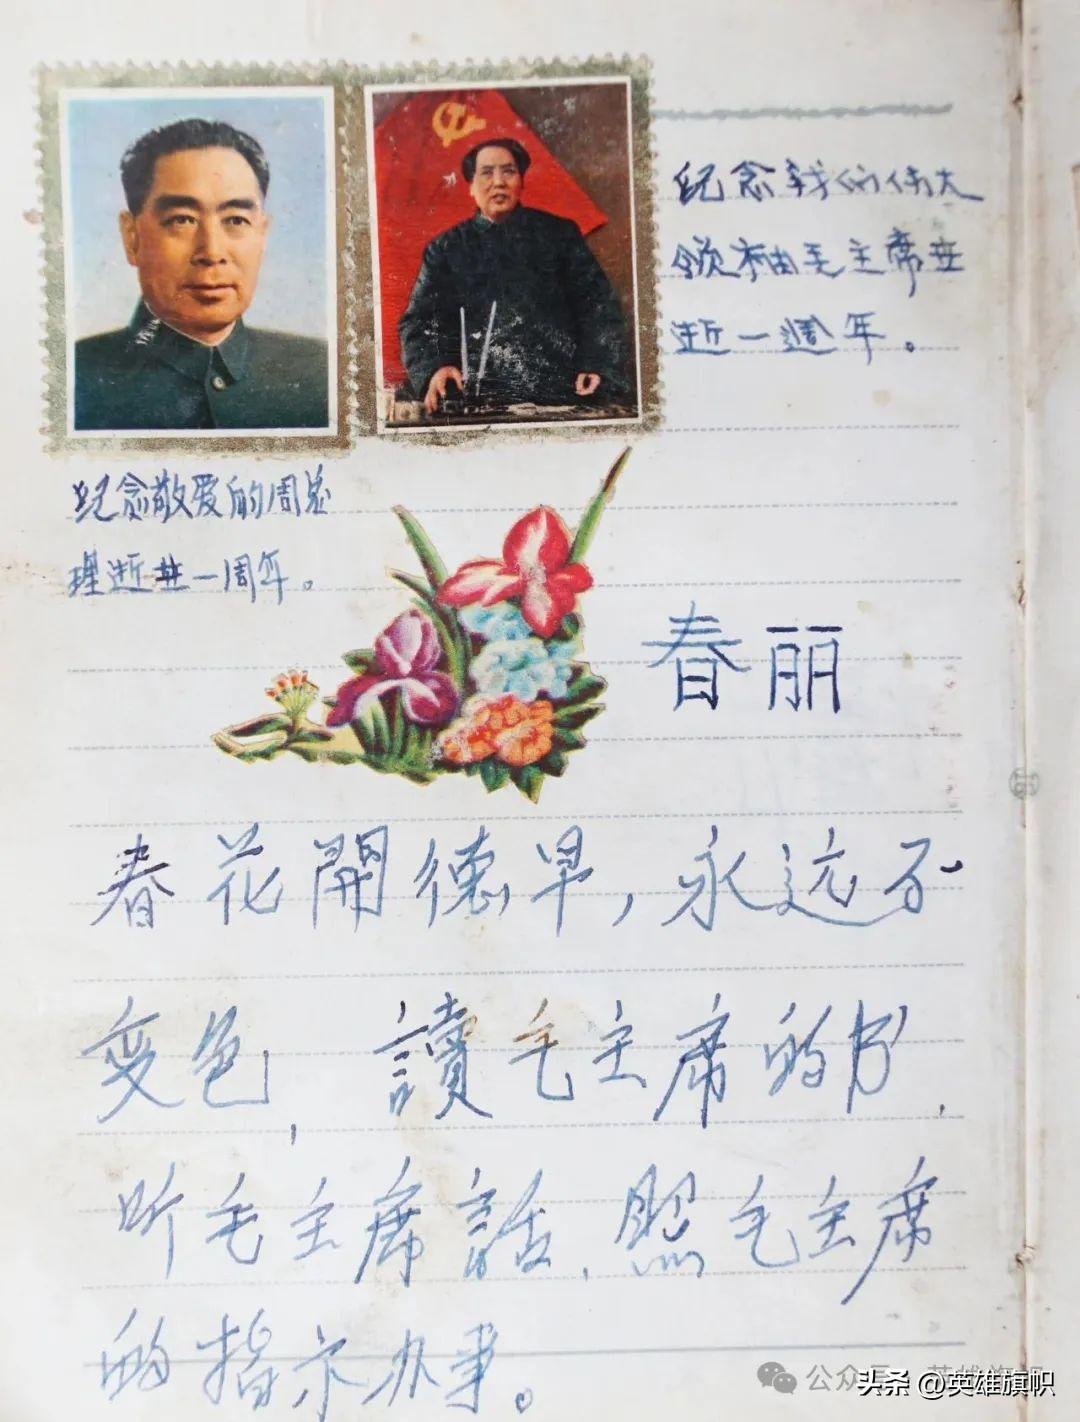 纪念我们伟大
领袖毛主席世
逝一週年。
纪念敬爱的周总
理逝世一周年。
春丽
春花開德早，永远不
变色，讀毛主席的书，
听毛主席話，照毛主席
的指示办事。
公众号
头条 @英雄旗帜